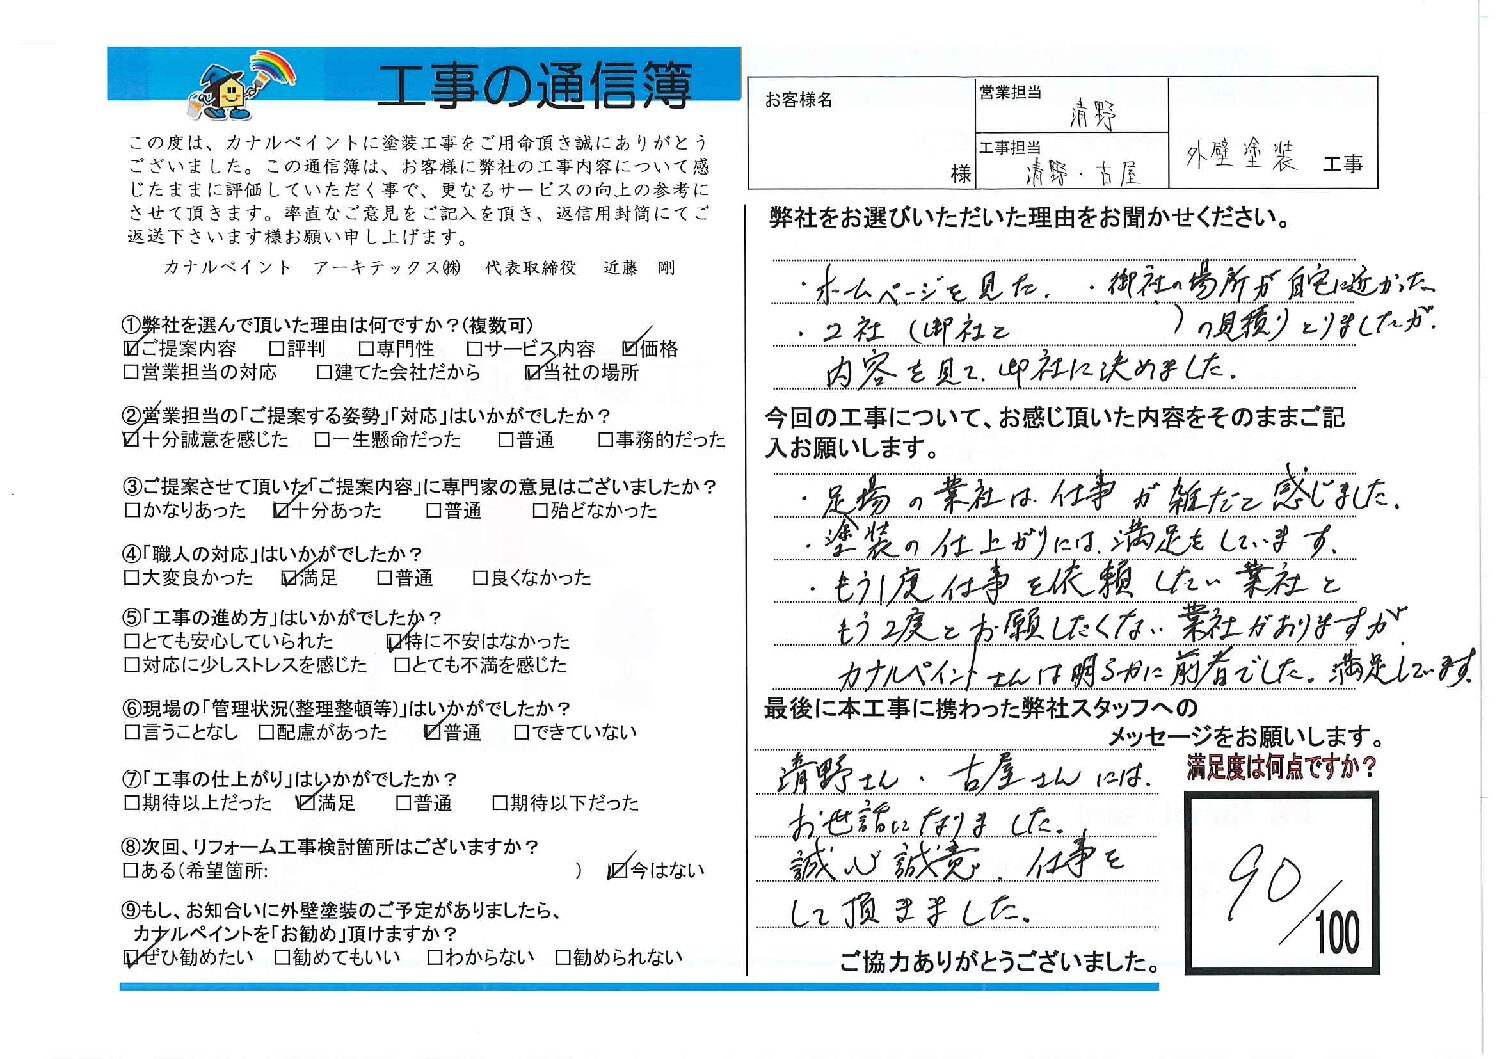 工事の通信簿
この度は、カナルペイントに塗装工事をご用命頂き誠にありがとう
ございました。この通信簿は、お客様に弊社の工事内容について感
じたままに評価していただく事で、更なるサービスの向上の参考に
させて頂きます。率直なご意見をご記入を頂き、返信用封筒にてご
返送下さいます様お願い申し上げます。
カナルペイント アーキテックス㈱ 代表取締役 近藤 剛
①弊社を選んで頂いた理由は何ですか?(複数可)
☑ご提案内容 □評判 □専門性 □サービス内容 ☑価格
□営業担当の対応 □建てた会社だから ☑当社の場所
②営業担当の「ご提案する姿勢」「対応」はいかがでしたか?
☑十分誠意を感じた □一生懸命だった □普通 □事務的だった
③ご提案させて頂いた「ご提案内容」に専門家の意見はございましたか?
□かなりあった ☑十分あった □普通 □殆どなかった
④「職人の対応」はいかがでしたか?
□大変良かった ☑満足 □普通 □良くなかった
⑤「工事の進め方」はいかがでしたか?
□とても安心していられた ☑特に不安はなかった
□対応に少しストレスを感じた □とても不満を感じた
⑥現場の「管理状況(整理整頓等)」はいかがでしたか?
□言うことなし □配慮があった ☑普通 □できていない
⑦「工事の仕上がり」はいかがでしたか?
□期待以上だった ☑満足 □普通 □期待以下だった
⑧次回、リフォーム工事検討箇所はございますか?
□ある(希望箇所: ) ☑今はない
⑨もし、お知合いに外壁塗装のご予定がありましたら、
カナルペイントを「お勧め」頂けますか?
☑ぜひ勧めたい □勧めてもいい □わからない □勧められない
お客様名
様
営業担当
清野
工事担当
清野・古屋
外壁塗装 工事
弊社をお選びいただいた理由をお聞かせください。
・ホームページを見た. ・御社の場所が自宅に近かった
・2社(御社と )の見積りとりましたが、
内容を見て、御社に決めました.
今回の工事について、お感じ頂いた内容をそのままご記
入お願いします。
・足場の業社は、仕事が雑だと感じました.
・塗装の仕上がりには、満足をしています.
・もう1度仕事を依頼したい業社と
もう2度とお願したくない業社がありますが
カナルペイントさんは明らかに前者でした。満足しています.
最後に本工事に携わった弊社スタッフへの
メッセージをお願いします。
清野さん・古屋さんには、
お世話になりました.
誠心誠意、仕事を
して頂きました.
満足度は何点ですか?
90/100
ご協力ありがとうございました。